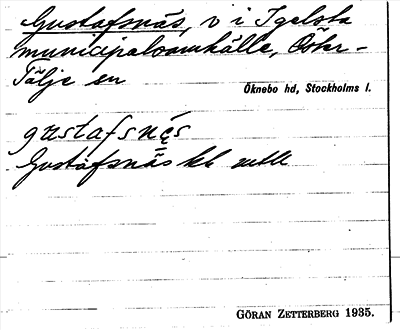 Gustafsnäs, v i Igelsta
municipalsamhälle, Öster-
Tälje sn
Öknebo hd, Stockholms l.
gustafsnęs
Gustafsnäs kb
GÖRAN ZETTERBERG 1935.